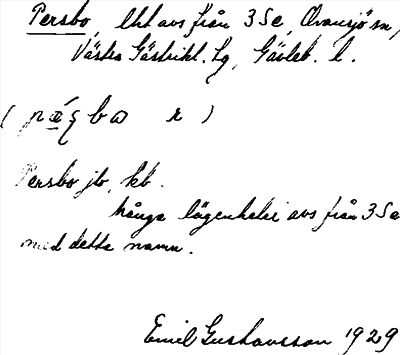 Persbo, lht avs från 3 Se, Ovansjö sn,
Västra Gästrikl. hg, Gävleb. l.
Persbo jb, kb.
Många lägenheter avs från 3 Se
med detta namn.
Emil Gustavsson 1929